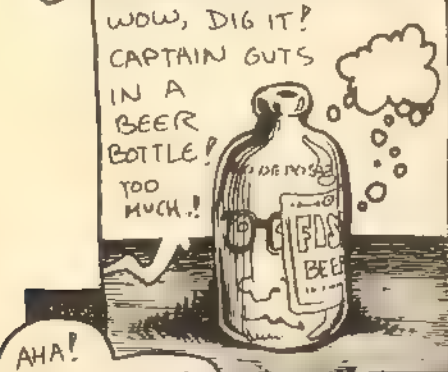 WOW, DIG IT!
CAPTAIN GUTS
IN A
BEER
BOTTLE!
TOO
MUCH!
FIS
BEE
AHA!